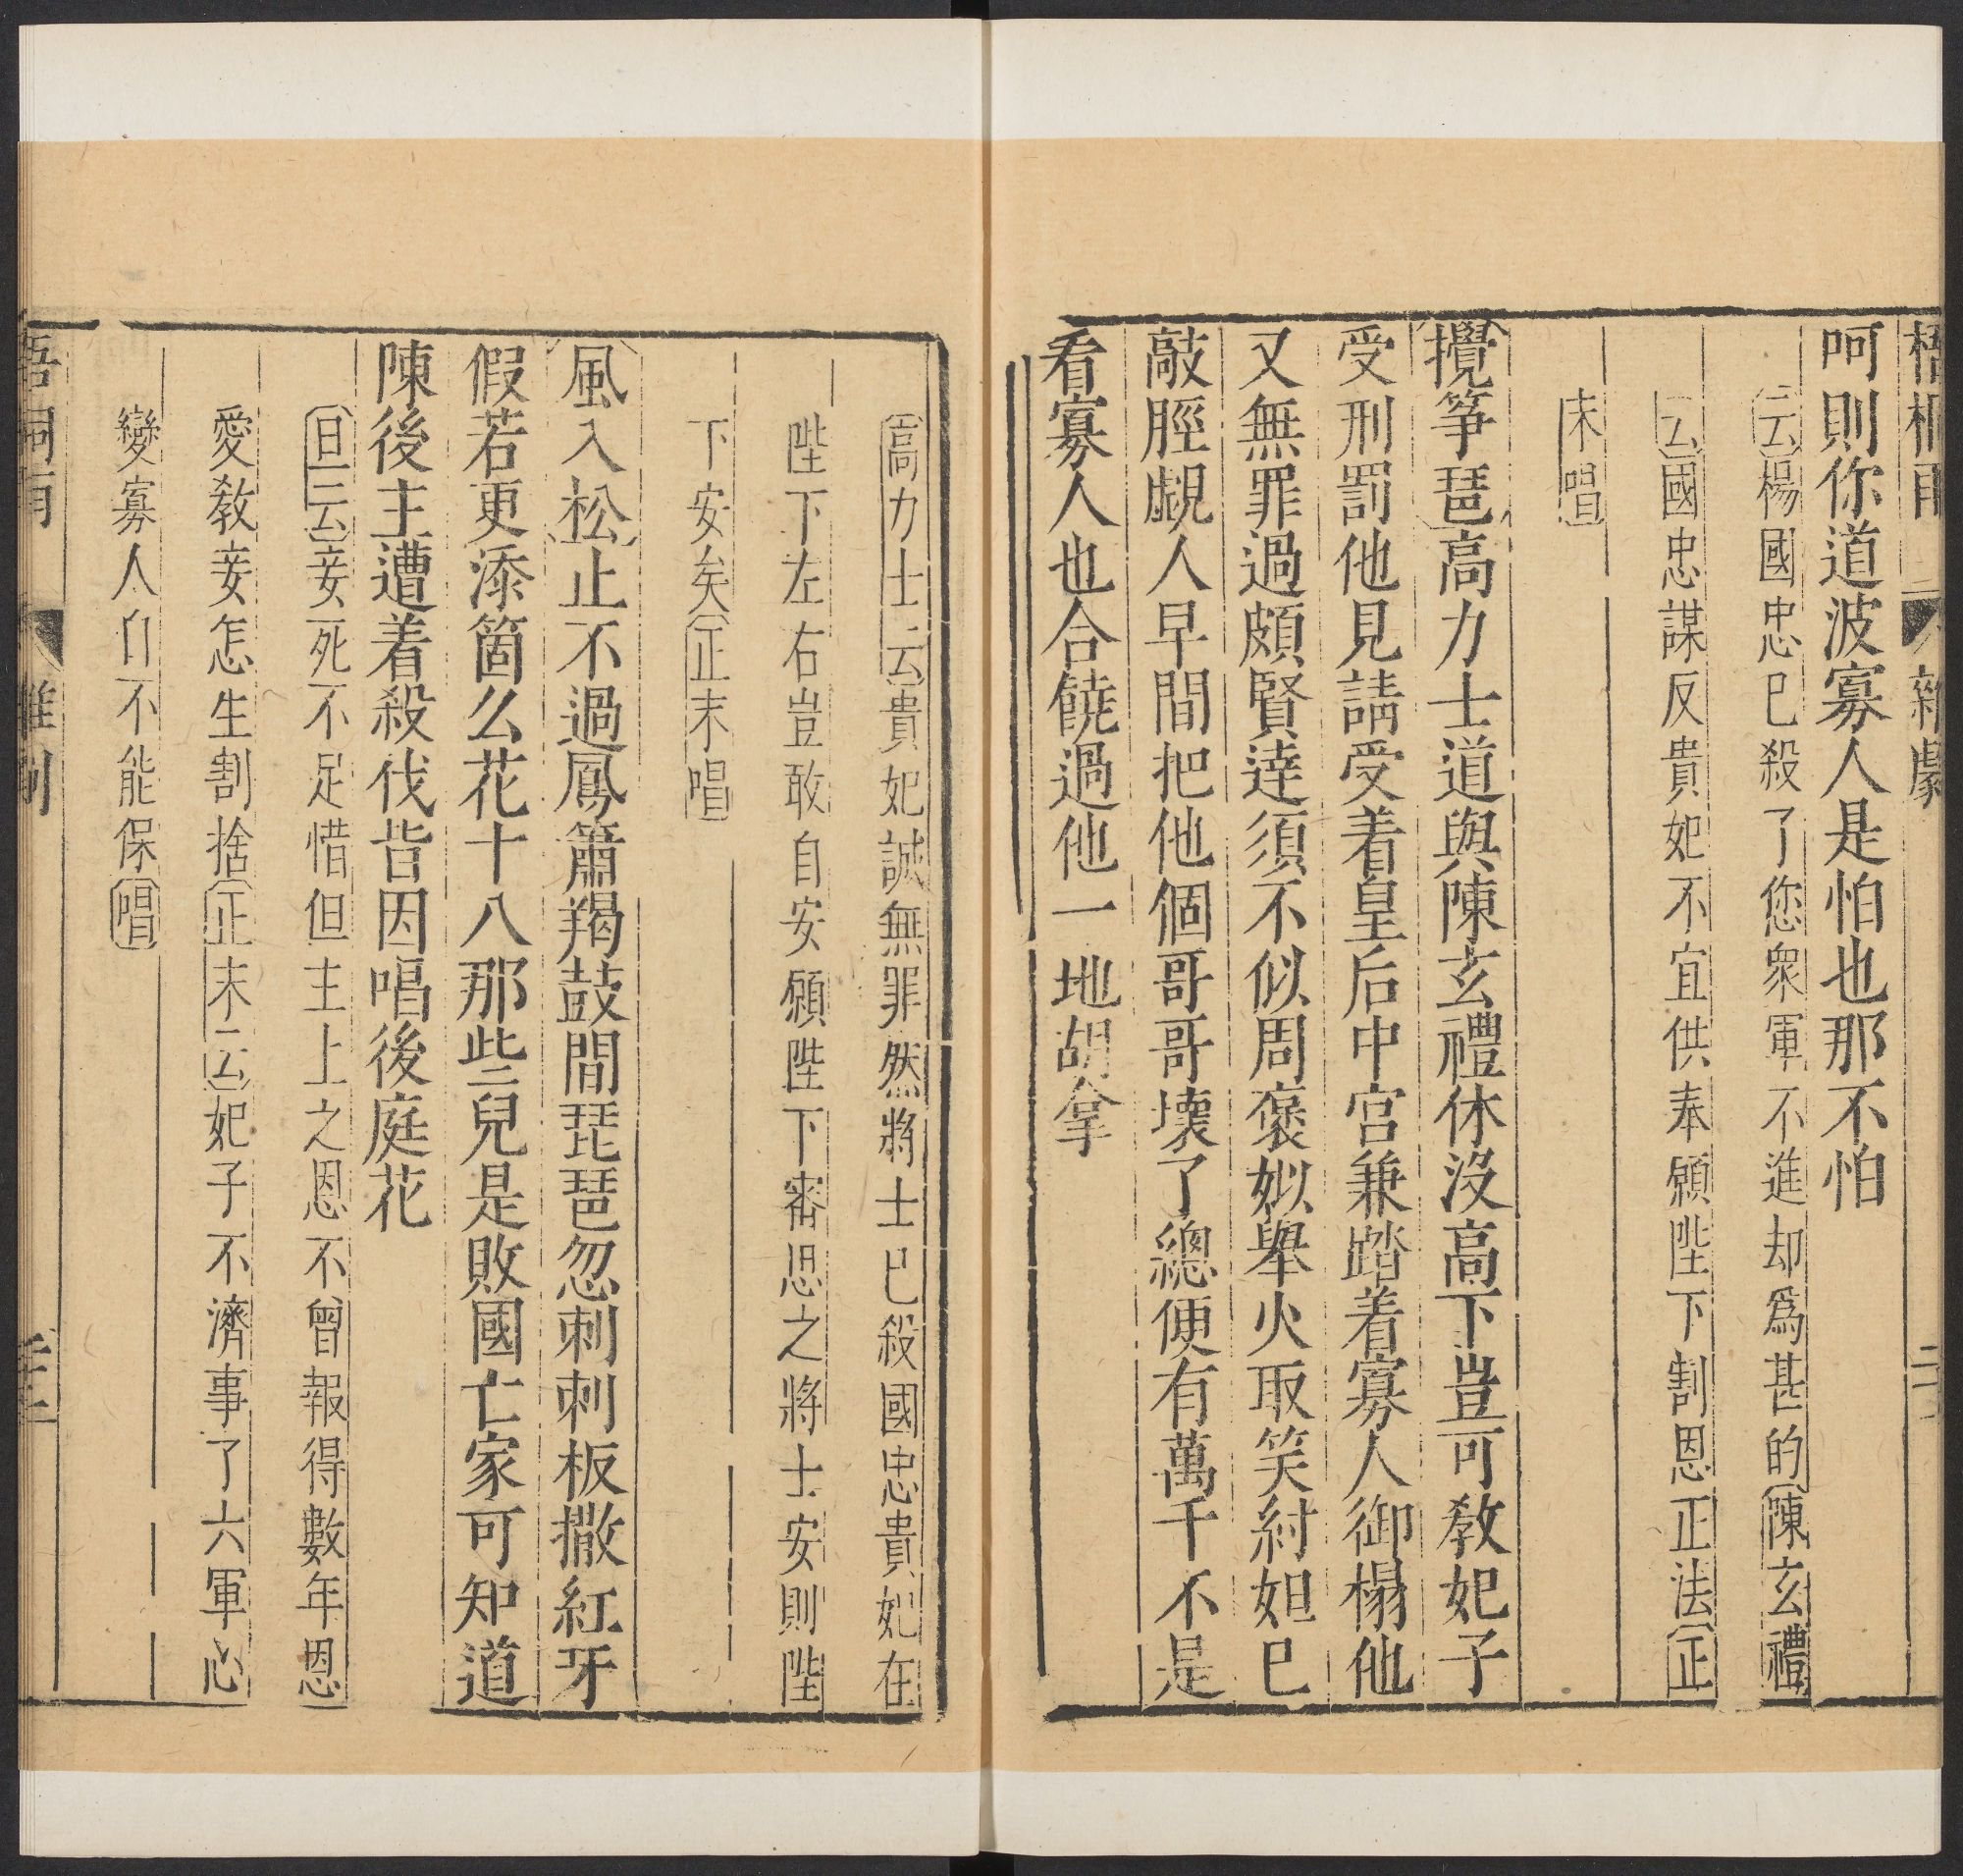 梧桐雨 雜劇 二十
呵則你道波寡人是怕也那不怕
云楊國忠已殺了您衆軍不進却爲甚的陳玄禮
云國忠謀反貴妃不宜供奉願陛下割恩正法正
末唱
攪筝琶高力士道與陳玄禮休没高下豈可敎妃子
受刑罰他見請受着皇后中宫兼踏着寡人御榻他
又無罪過頗賢逹須不似周褒姒舉火取笑紂妲已
敲脛覷人早間把他個哥哥壊了總便有萬千不是
看寡人也合饒過他一地胡拿
高力士云貴妃誠無罪然將士已殺國忠貴妃在
陛下左右豈敢自安願陛下審思之將士安則陛
下安矣正末唱
風入松止不過鳳簫羯鼓間琵琶忽剌剌板撒紅牙
假若更添箇么花十八那些兒是敗國亡家可知道
陳後主遭着殺伐皆因唱後庭花
旦云妾死不足惜但主上之恩不曾報得數年恩
愛敎妾怎生割捨正末云妃子不濟事了六軍心
變寡人自不能保唱
梧桐雨 雜劇